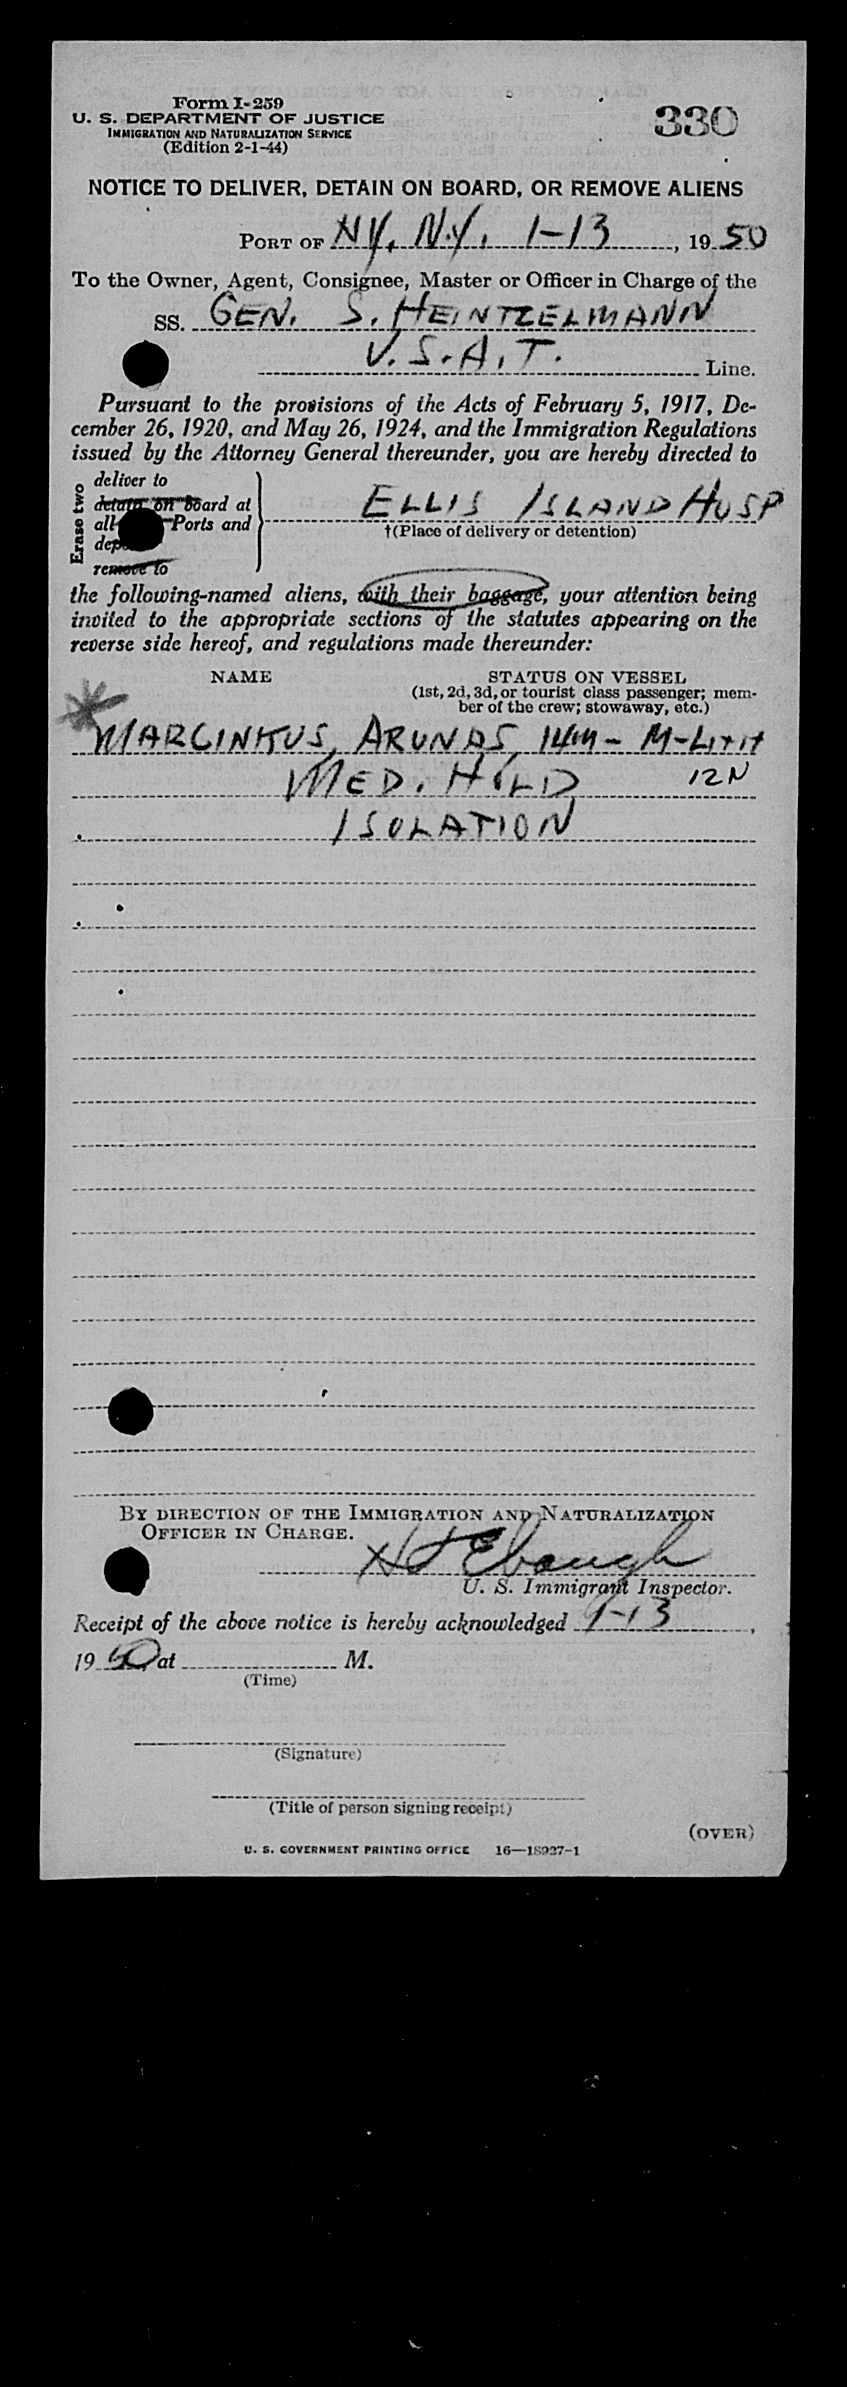 Form I-259
U. S. DEPARTMENT OF JUSTICE
IMMIGRATION AND NATURALIZATION SERVICE
(Edition 2-1-44)
330
NOTICE TO DELIVER, DETAIN ON BOARD, OR REMOVE ALIENS
PORT OF NY, N.Y. 1-13, 1950
To the Owner, Agent, Consignee, Master or Officer in Charge of the
SS. GEN. S. HEINTZELMANN
U.S.A.T. Line.
Pursuant to the provisions of the Acts of February 5, 1917, De-
cember 26, 1920, and May 26, 1924, and the Immigration Regulations
issued by the Attorney General thereunder, you are hereby directed to
Erase two
deliver to
detain on board at
all Ports and
remove to
ELLIS ISLAND HOSP
†(Place of delivery or detention)
the following-named aliens, with their baggage, your attention being
invited to the appropriate sections of the statutes appearing on the
reverse side hereof, and regulations made thereunder:
NAME
STATUS ON VESSEL
(1st, 2d, 3d, or tourist class passenger; mem-
ber of the crew; stowaway, etc.)
MARCINKUS, ARUNAS, 14M - M-LITH
MED. HOLD 12N
ISOLATION
BY DIRECTION OF THE IMMIGRATION AND NATURALIZATION
OFFICER IN CHARGE.
Ebaugh
U. S. Immigrant Inspector.
Receipt of the above notice is hereby acknowledged 1-13,
1950, at M.
(Time)
(Signature)
(Title of person signing receipt)
(OVER)
U. S. GOVERNMENT PRINTING OFFICE 16—18927-1